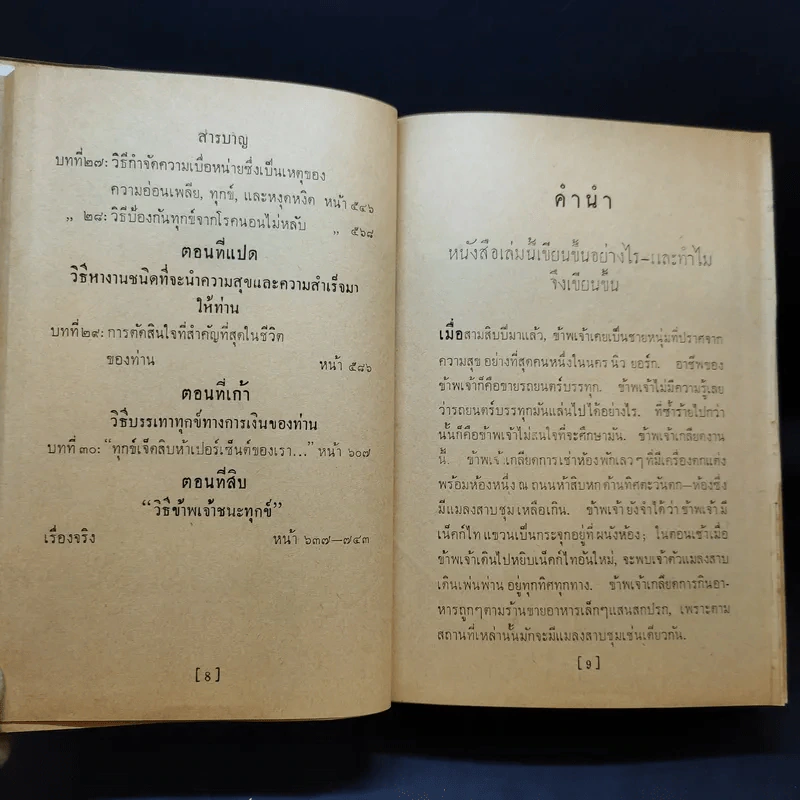 สารบาญ
บทที่๒๗: วิธีกำจัดความเบื่อหน่ายซึ่งเป็นเหตุของ
ความอ่อนเพลีย, ทุกข์, และหงุดหงิด หน้า ๕๔๖
„ ๒๘: วิธีป้องกันทุกข์จากโรคนอนไม่หลับ „ ๕๖๘
ตอนที่แปด
วิธีหางานชนิดที่จะนำความสุขและความสำเร็จมา
ให้ท่าน
บทที่๒๙: การตัดสินใจที่สำคัญที่สุดในชีวิต
ของท่าน หน้า ๕๘๖
ตอนที่เก้า
วิธีบรรเทาทุกข์ทางการเงินของท่าน
บทที่ ๓๐: “ทุกข์เจ็ดสิบห้าเปอร์เซ็นต์ของเรา...” หน้า ๖๐๗
ตอนที่สิบ
“วิธีข้าพเจ้าชนะทุกข์”
เรื่องจริง หน้า ๖๓๗—๗๔๓
[ 8 ]
คำนำ
หนังสือเล่มนี้เขียนขึ้นอย่างไร—และทำไม
จึงเขียนขึ้น
เมื่อสามสิบปีมาแล้ว, ข้าพเจ้าเคยเป็นชายหนุ่มที่ปราศจาก
ความสุข อย่างที่สุดคนหนึ่งในนคร นิว ยอร์ก. อาชีพของ
ข้าพเจ้าก็คือขายรถยนตร์บรรทุก. ข้าพเจ้าไม่มีความรู้เลย
ว่ารถยนตร์บรรทุกมันแล่นไปได้อย่างไร. ที่ซ้ำร้ายไปกว่า
นั้นก็คือข้าพเจ้าไม่สนใจที่จะศึกษามัน. ข้าพเจ้าเกลียดงาน
นี้. ข้าพเจ้าเกลียดการเช่าห้องพักเลว ๆ ที่มีเครื่องตกแต่ง
พร้อมห้องหนึ่ง ณ ถนนห้าสิบหก ด้านทิศตะวันตก—ห้องซึ่ง
มีแมลงสาบชุม เหลือเกิน. ข้าพเจ้า ยังจำได้ว่า ข้าพเจ้า มี
เน็คก์ไท แขวนเป็นกระจุกอยู่ที่ ผนังห้อง; ในตอนเช้าเมื่อ
ข้าพเจ้าเดินไปหยิบเน็คก์ไทอันใหม่, จะพบเจ้าตัวแมลงสาบ
เดินเพ่นพ่าน อยู่ทุกทิศทุกทาง. ข้าพเจ้าเกลียดการกินอา-
หารถูกๆตามร้านขายอาหารเล็กๆแสนสกปรก, เพราะตาม
สถานที่เหล่านั้นมักจะมีแมลงสาบชุมเช่นเดียวกัน.
[ 9 ]